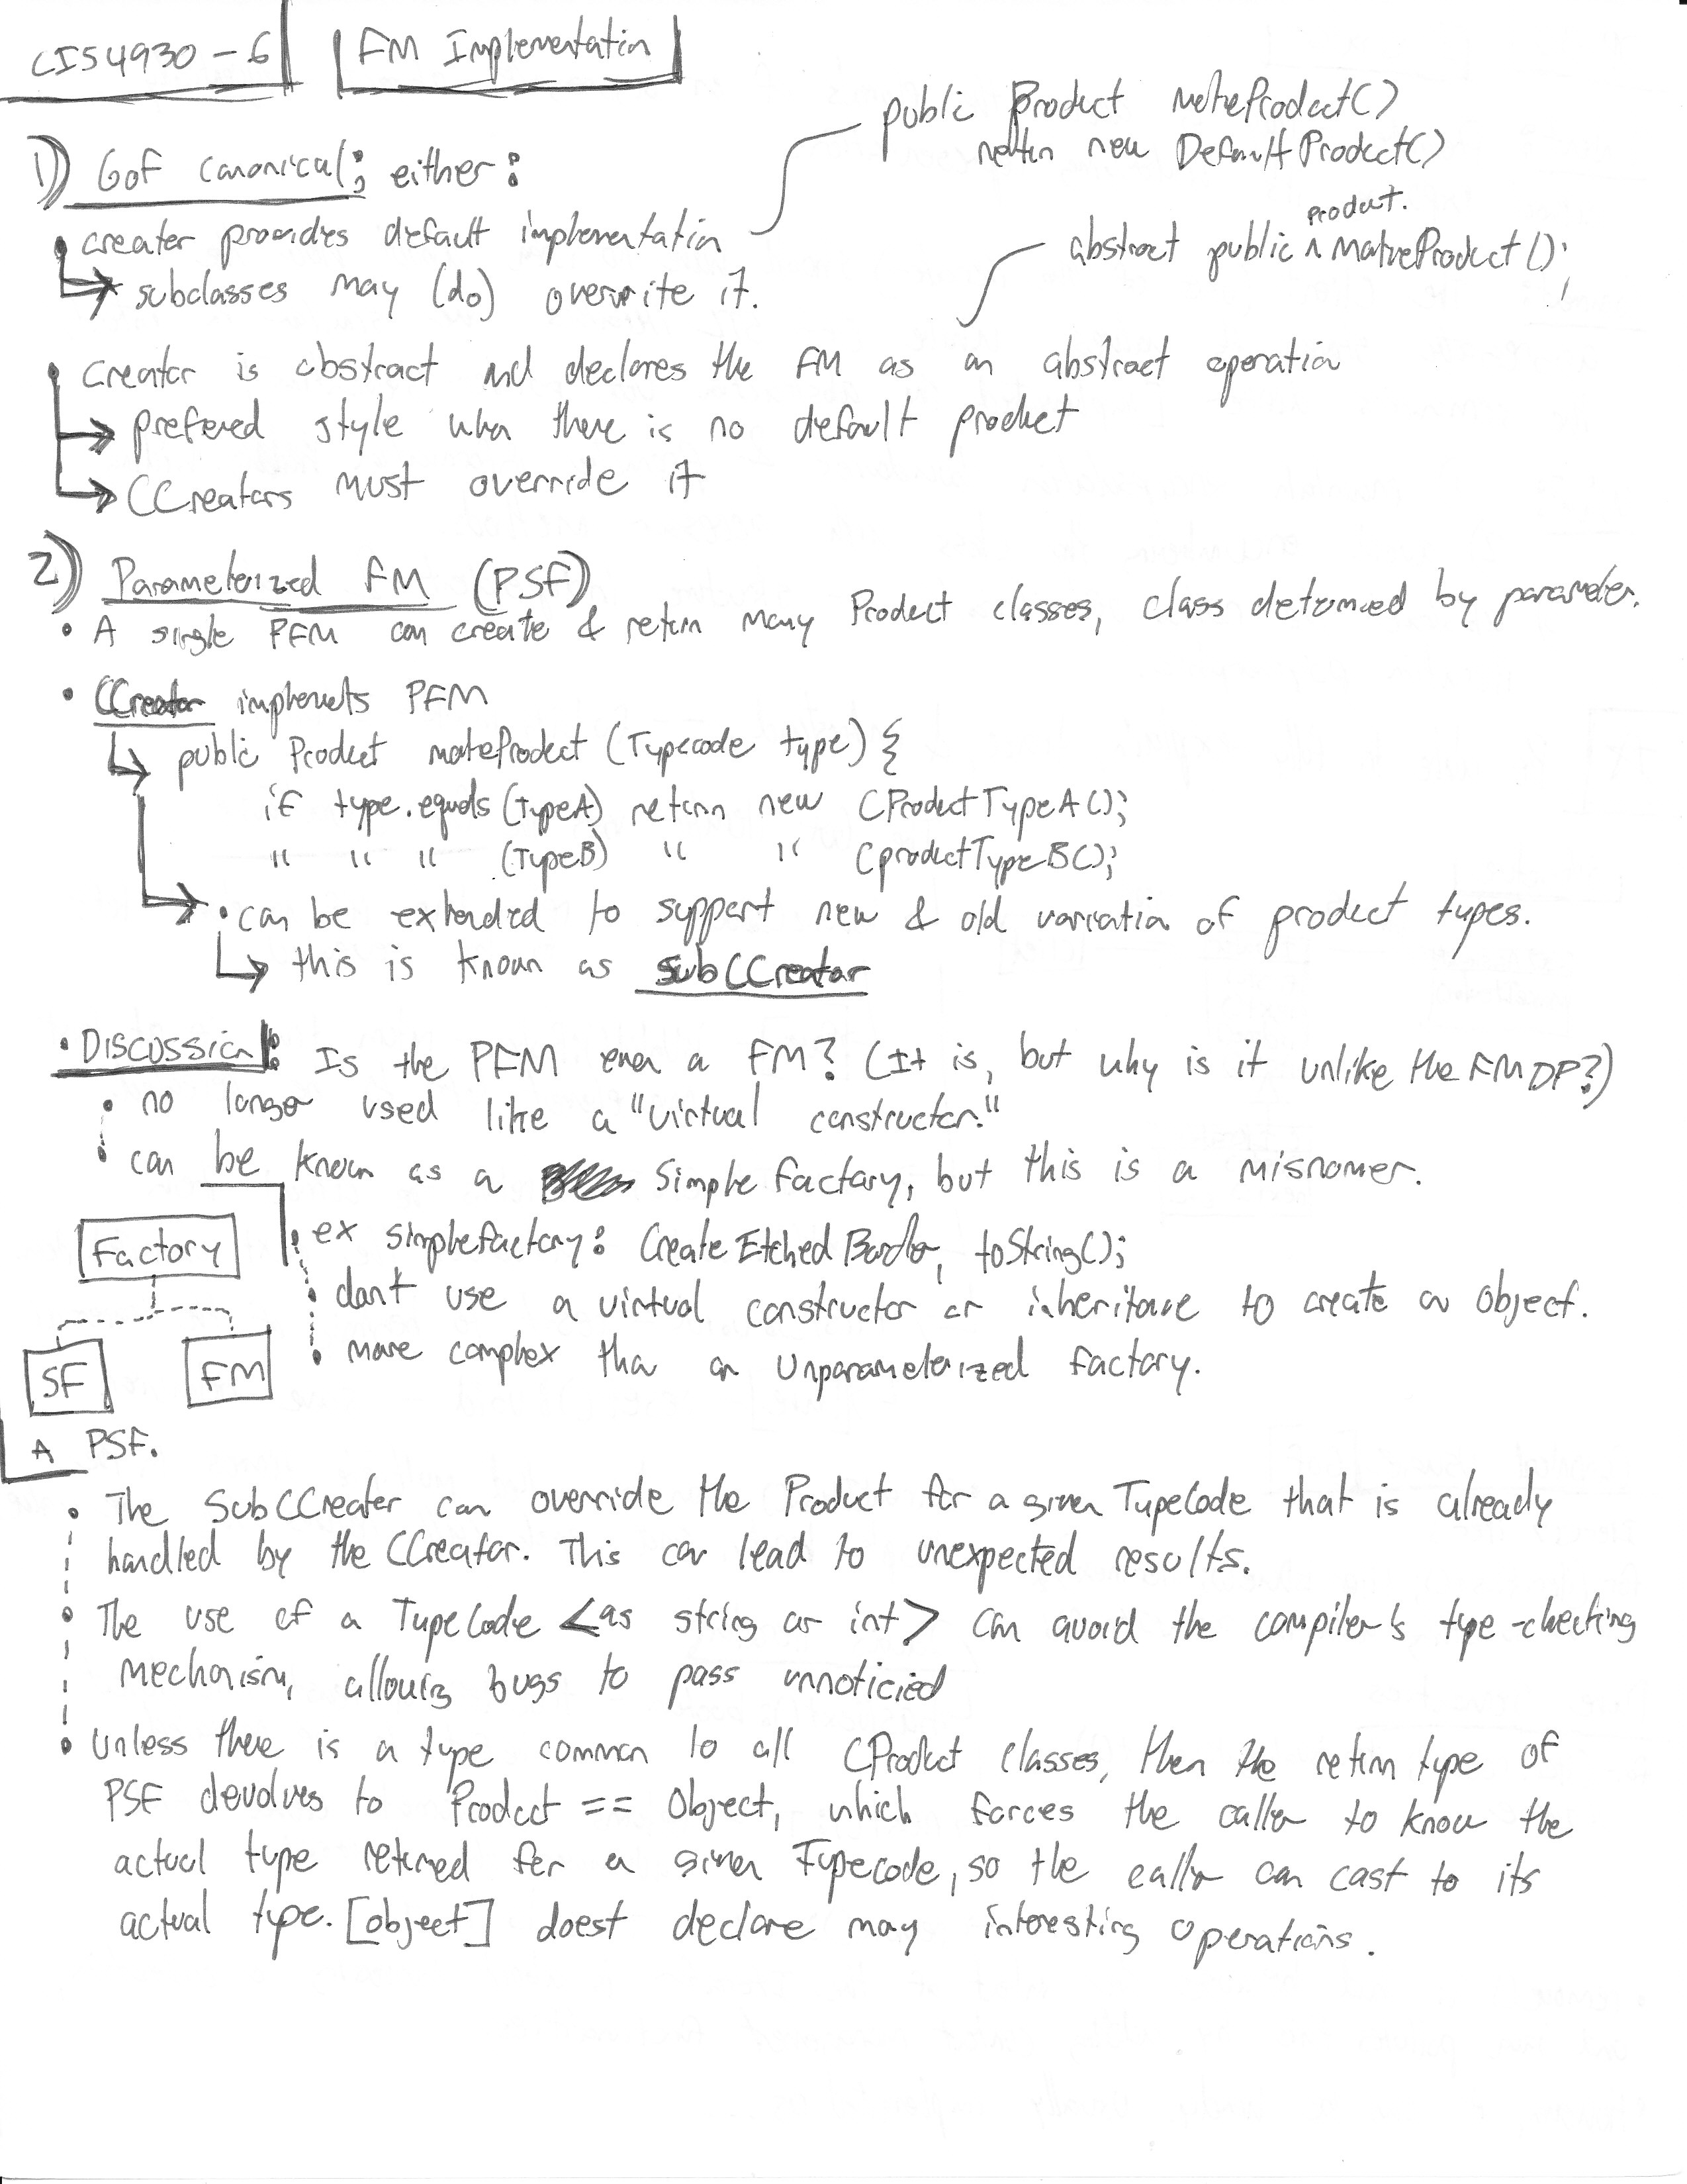 CIS4930-6 FM Implementation
public Product MakeProduct()
return new DefaultProduct()
1) GoF canonical: either:
• creater provides default implementation
→ subclasses may (do) overwrite it.
product.
abstract public ^ MakeProduct();
• Creator is abstract and declares the FM as an abstract operation
→ prefered style when there is no default product
→ CCreators must override it
2) Parameterized FM (PSF)
• A single PFM can create & return many Product classes, class determined by parameter.
• CCreator implements PFM
↳ public Product makeProduct (Typecode type) {
if type.equals (TypeA) return new CProductTypeA();
" " " (TypeB) " " CproductTypeB();
→ • can be extended to support new & old variation of product types.
↳ this is known as subCCreator
• Discussion: Is the PFM even a FM? (It is, but why is it unlike the FM DP?)
• no longer used like a "virtual constructor."
• can be known as a Simple factory, but this is a misnomer.
• ex simplefactory: CreateEtchedBorder, toString();
• dont use a virtual constructor or inheritance to create an object.
• more complex than an Unparameterized factory.
Factory
SF FM
A PSF.
• The SubCCreater can override the Product for a given TypeCode that is already
handled by the CCreator. This can lead to unexpected results.
• The use of a TypeCode <as string or int> can avoid the compiler's type-checking
mechanism, allowing bugs to pass unnoticied
• Unless there is a type common to all CProduct classes, then the return type of
PSF devolves to Product == Object, which forces the caller to know the
actual type returned for a given Typecode, so the caller can cast to its
actual type. [object] doest declare may interesting operations.